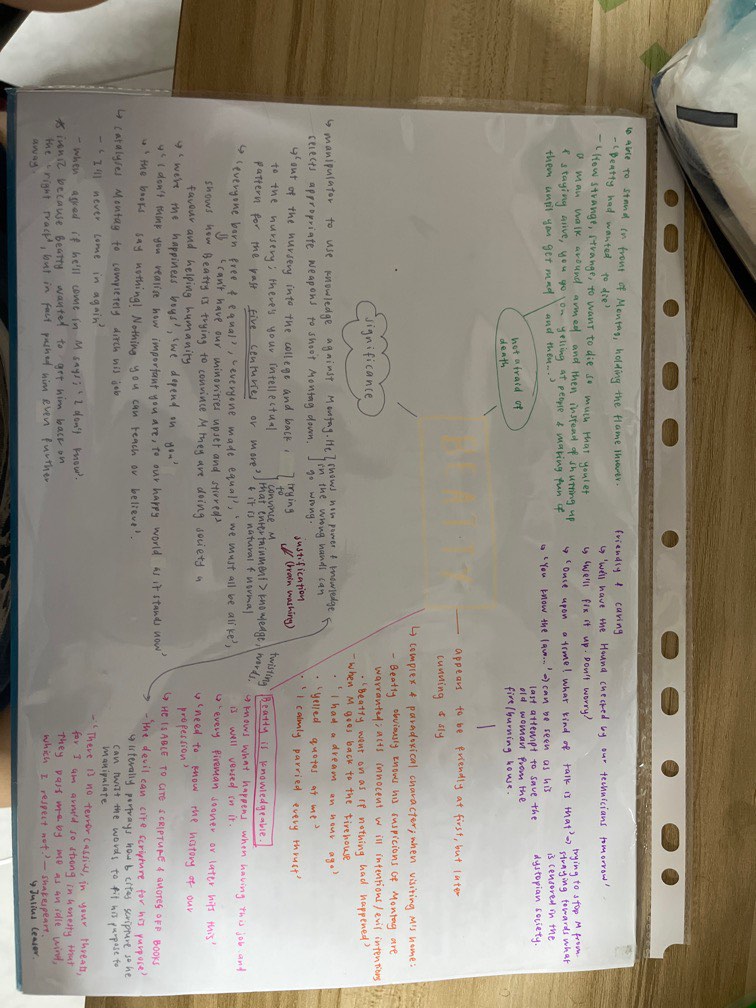 BEATTY
not afraid of
death
↳ Able to stand in front of Montag, holding the flame thrower.
- 'Beatty had wanted to die'
- 'How strange, strange, to want to die so much that you let
a man walk around armed and then instead of shutting up
& staying alive, you go on yelling at people & making fun of
them until you get mad, and then...'
friendly & caring
↳ 'We'll have the Hound checked by our technicians tomorrow'
↳ 'We'll fix it up. Don't worry'
↳ 'Once upon a time! what kind of talk is that' ⇒ trying to stop M from
straying towards what
is censored in the
dystopian society.
↳ 'You know the law...' ⇒ can be seen as his
last attempt to save the
old woman from the
fire/burning house.
appears to be friendly at first, but later
cunning & sly
↳ complex & paradoxical character, when visiting M's home:
- Beatty obviously knows his suspicions of Montag are
warranted, acts innocent w ill intentions/evil intentions
- when M goes back to the firehouse
• 'Beatty went on as if nothing had happened'
• 'I had a dream an hour ago'
• 'yelled quotes at me'
• 'I calmly parried every thrust'
twisting
words.
Beatty is knowledgeable.
↳ knows what happens when having this job and
is well versed in it.
↳ 'every fireman sooner or later hits this'
↳ 'need to know the history of our
profession'
↳ HE IS ABLE TO CITE SCRIPTURE & QUOTES OFF BOOKS
- 'the devil can cite scripture for his purpose'
↳ literally portrays how B cites scripture so he
can twist the words to fit his purpose to
manipulate.
- 'There is no terror, Cassius, in your threats,
for I am armed so strong in honesty that
they pass me by me as an idle wind,
which I respect not!' - Shakespeare,
↳ Julius Ceaser.
significance
↳ manipulator to use knowledge against Montag. He
selects appropriate weapons to shoot Montag down.
shows how power & knowledge
in the wrong hands can
go wrong.
↳ 'out of the nursery into the college and back
to the nursery; there's your intellectual
pattern for the past five centuries or more'
trying
to
convince M
that entertainment > knowledge
& it is natural & normal
justification
(brain washing)
↳ 'everyone born free & equal', 'everyone made equal', 'we must all be alike',
'can't have our minorities upset and stirred'
shows how Beatty is trying to convince M they are doing society a
favour and helping humanity
↳ 'we're the happiness boys', 'we depend on you'
↳ 'I don't think you realize how important you are, to our happy world as it stands now'
↳ 'the books say nothing! Nothing you can teach or believe'.
↳ catalyses Montag to completely ditch his job
- 'I'll never come in again'
- when asked if he'll come in M says; 'I don't know'.
* ironic because Beatty wanted to get him back on
the 'right track', but in fact pushed him even further
away.